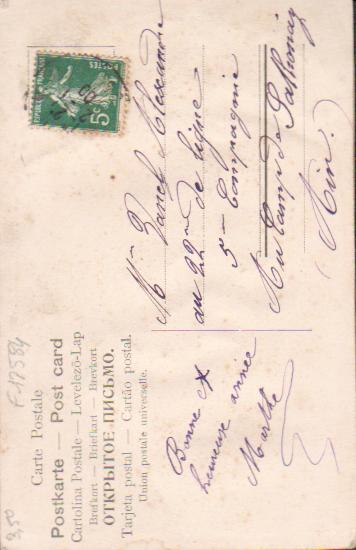 Carte Postale
Postkarte — Post card
Cartolina Postale — Levelező-Lap
Brefkort — Briefkart — Brevkort
ОТКРЫТОЕ ПИСЬМО.
Tarjeta postal — Cartão postal.
Union postale universelle.
F 17584
3,50
POSTES
5c
Mr Alexandre
au 22e de ligne
5e Compagnie
Au Camp de Sathonay
Ain.
Bonne et
heureuse année
Marthe